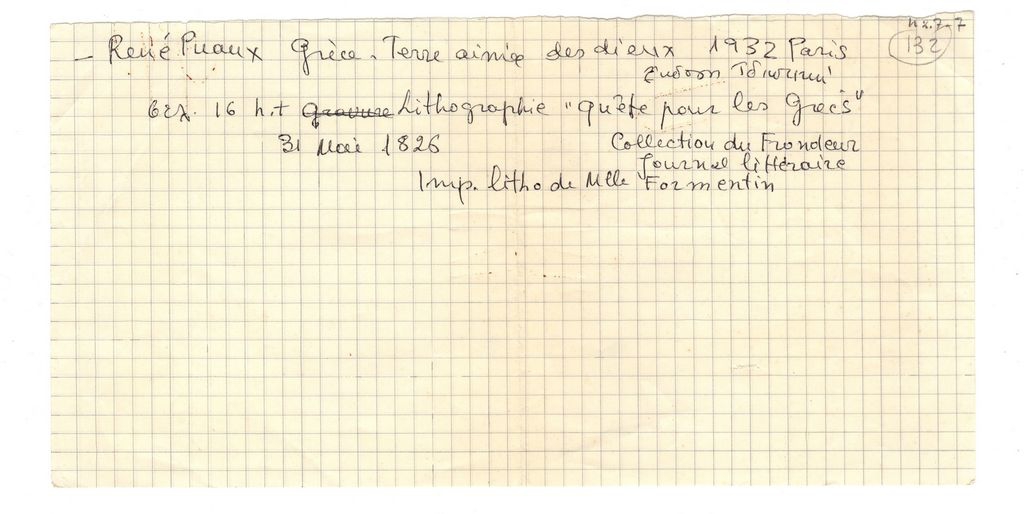 132
– René Puaux Grèce. Terre aimée des dieux 1932 Paris
έκδοση Ιδιωτική
σελ. 16 h.t Gravure Lithographie "quête pour les Grecs"
31 Mai 1826 Collection du Frondeur
Journal littéraire
Imp. litho de Mlle Formentin